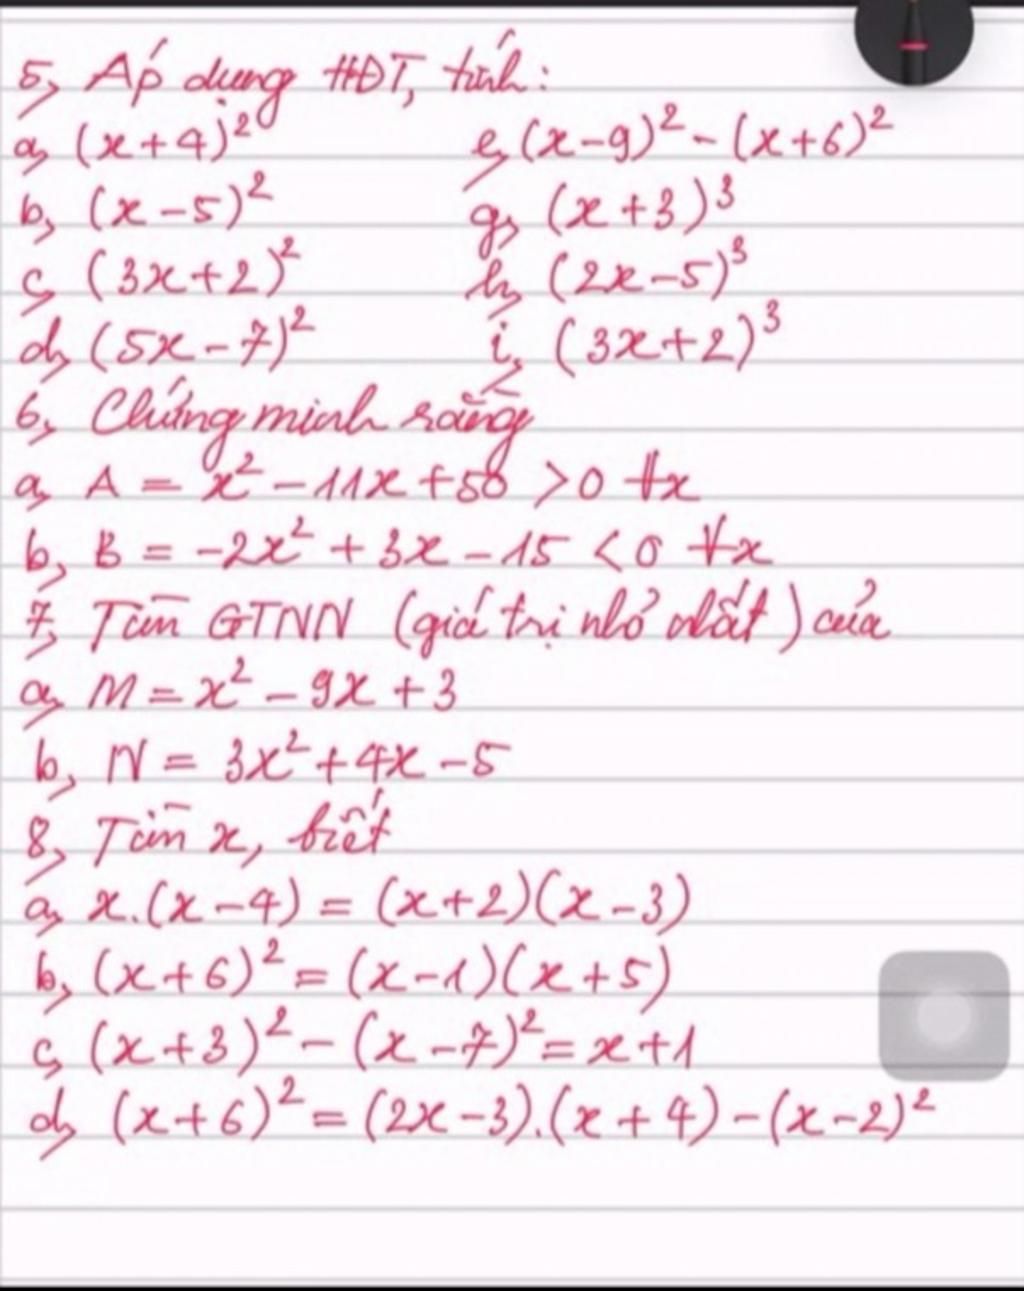 5, Áp dụng HĐT, tính:
a, (x+4)² e, (x-9)² - (x+6)²
b, (x-5)² g, (x+3)³
c, (3x+2)² h, (2x-5)³
d, (5x-7)² i, (3x+2)³
6, Chứng minh rằng
a, A = x² - 11x + 50 > 0 ∀x
b, B = -2x² + 3x - 15 < 0 ∀x
7, Tìm GTNN (giá trị nhỏ nhất) của
a, M = x² - 9x + 3
b, N = 3x² + 4x - 5
8, Tìm x, biết
a, x.(x-4) = (x+2)(x-3)
b, (x+6)² = (x-1)(x+5)
c, (x+3)² - (x-7)² = x+1
d, (x+6)² = (2x-3).(x+4) - (x-2)²